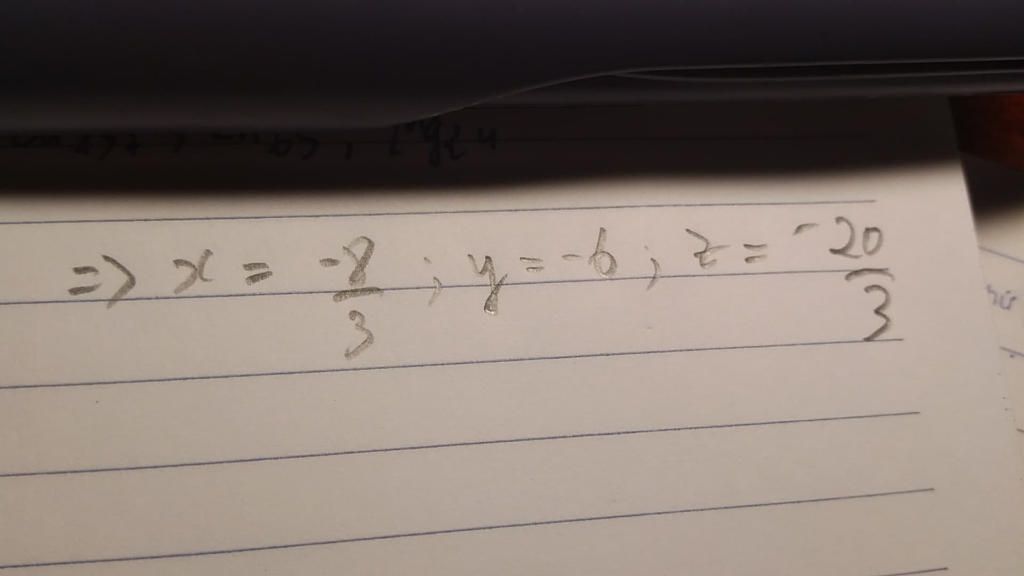 => x = -8/3 ; y = -6 ; z = -20/3